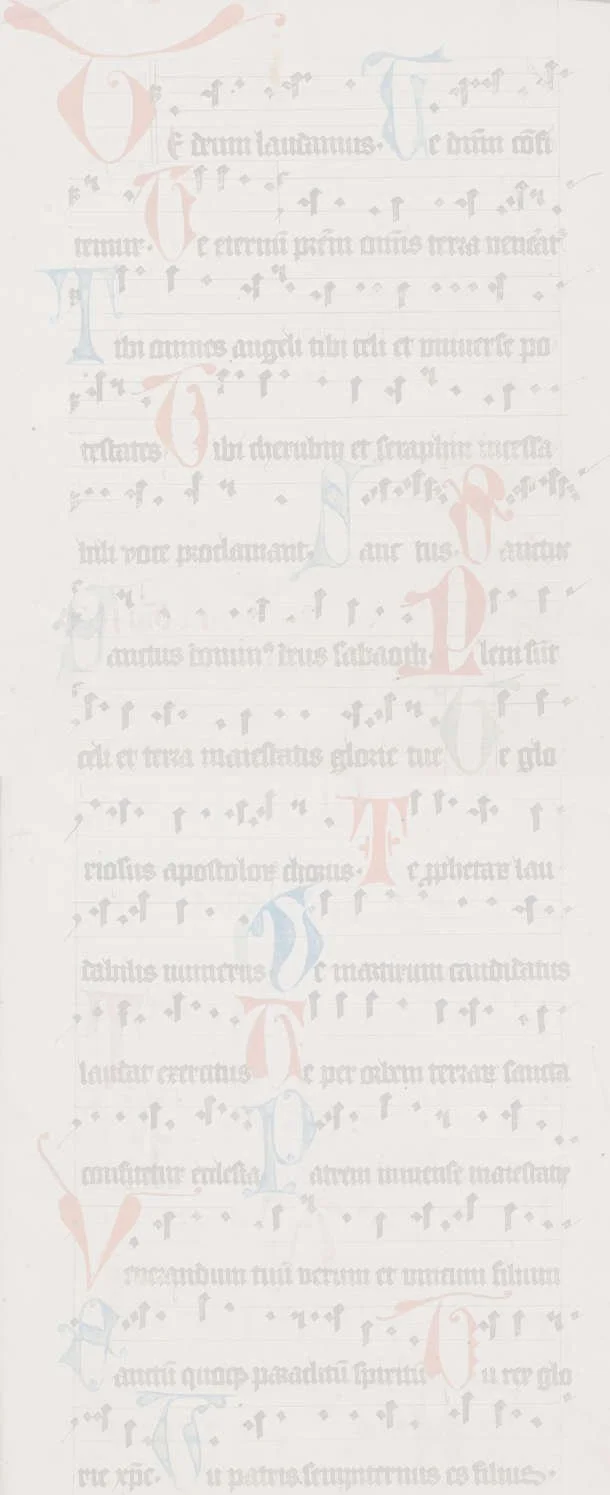 TE deum laudamus. Te dnm cofi
temur. Te eternu prem omis terra venerat
Tibi omnes angeli tibi celi et vniuerse po
testates Tibi cherubin et seraphin incessa
bili voce proclamant. Sanc tus. Sanctus
Sanctus dominus deus sabaoth Pleni sut
celi et terra maiestatis glorie tue Te glo
riosus apostoloꝝ chorus. Te ꝓphetaꝝ lau
dabilis numerus Te martirum candidatus
laudat exercitus Te per orbem terraꝝ sancta
confitetur ecclesia Patrem inmense maiestatis
Venerandum tuū verum et vnicum filium
Sanctū quoqꝫ paraclitū spiritū Tu rex glo
rie xp̄e. Tu patris sempiternus es filius.